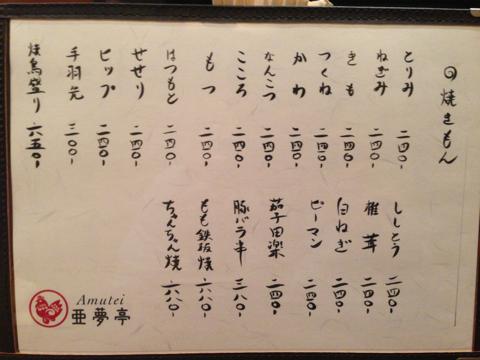 の焼きもん
とりみ 二四〇-
ねぎみ 二四〇-
きも 二四〇-
つくね 二四〇-
かわ 二四〇-
なんこつ 二四〇-
こころ 二四〇-
もつ 二四〇-
はつもと 二四〇-
せせり 二四〇-
ヒップ 二四〇-
手羽先 三〇〇-
焼鳥盛り 六五〇-
ししとう 二四〇-
椎茸 二四〇-
白ねぎ 二四〇-
ピーマン 二四〇-
茄子田楽 二四〇-
豚バラ串 三八〇-
もも鉄板焼 六八〇-
ちゃんちゃん焼 六八〇-
Amutei
亜夢亭